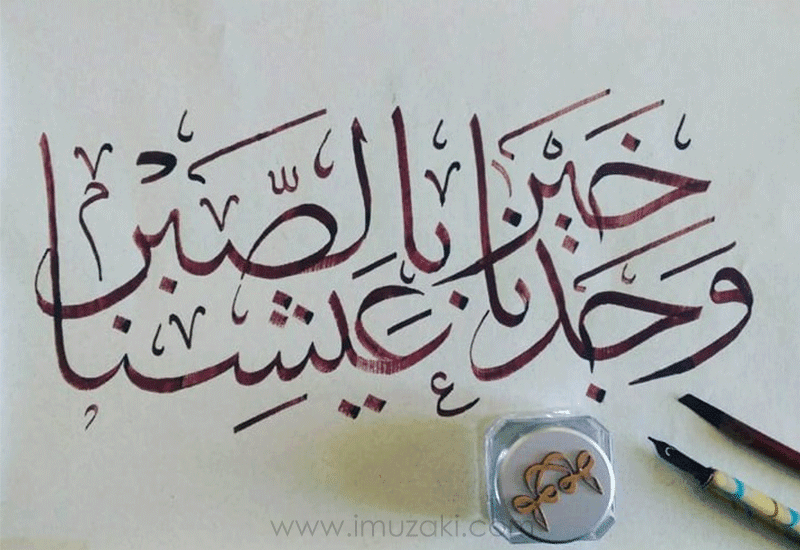 وَجَدنَا خَيْرَ عَيشِنَا بِالصَّبْرِ
www.imuzaki.com